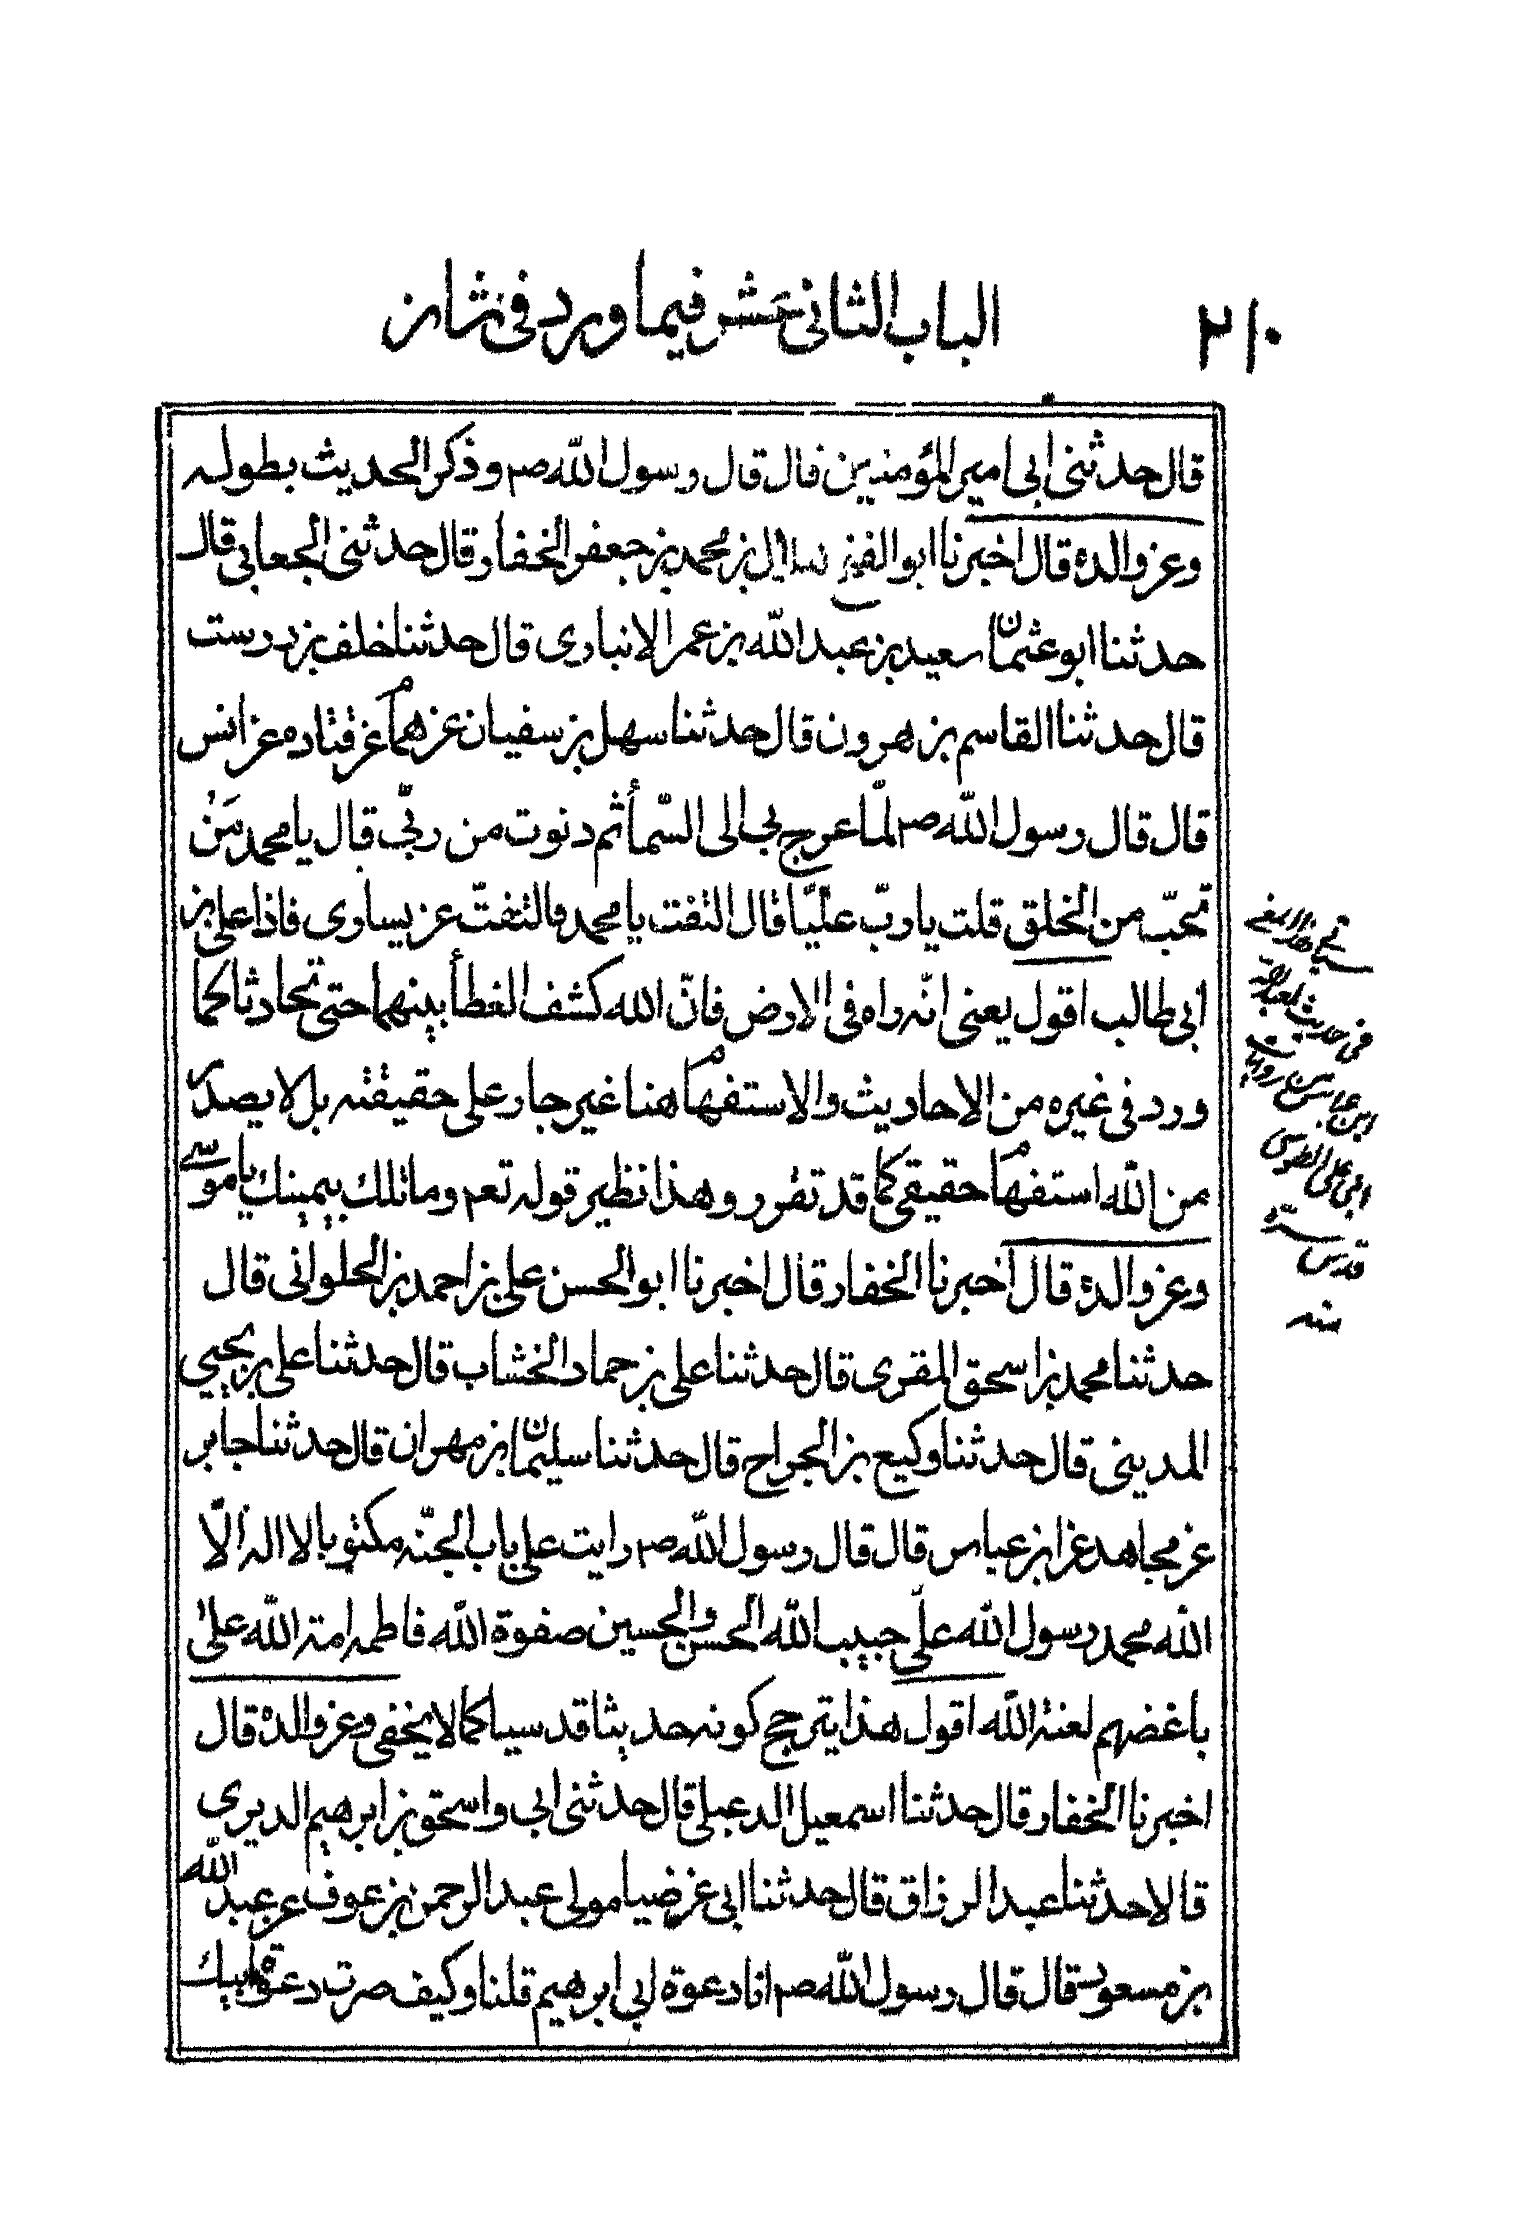 ٢١٠
الباب الثانى عشر فيما ورد فى شان
قال حدثنى ابى امير المؤمنين قال قال رسول الله صم وذكر الحديث بطوله
وعن والده قال اخبرنا ابو الفتح هلال بن محمد بن جعفر الحفار قال حدثنى الجعابى قال
حدثنا ابو عثمان سعيد بن عبد الله بن عمر الانبارى قال حدثنا خلف بن درست
قال حدثنا القاسم بن هرون قال حدثنا سهل بن سفيان عن همام عن قتاده عن انس
قال قال رسول الله صم لمّا عرج بى الى السّمأ ثم دنوت من ربّى قال يا محمد مَنْ
تحبّ من الخلق قلت يا ربّ عليّا قال التفت يا محمد فالتفتّ عن يسارى فاذا على بن
ابى طالب اقول يعنى انّه راه فى الارض فانّ الله كشف الغطأ بينهما حتى تحادثا كما
ورد فى غيره من الاحاديث والاستفهام هنا غير جار على حقيقته بل لا يصدر
من الله استفهام حقيقى كما قد تقرر وهذا نظير قوله تعم وما تلك بيمينك يا موسى
وعن والده قال اخبرنا الحفار قال اخبرنا ابو الحسن على بن احمد بن الحلوانى قال
حدثنا محمد بن اسحق المقرى قال حدثنا على بن حماد الخشاب قال حدثنا على بن يحيى
المدينى قال حدثنا وكيع بن الجراح قال حدثنا سليمان بن مهران قال حدثنا جابر
عن مجاهد عن ابن عباس قال قال رسول الله صم رايت على باب الجنّه مكتوبا لا اله الّا
الله محمد رسول الله علىّ حبيب الله الحسن والحسين صفوة الله فاطمه امة الله على
باغضهم لعنة الله اقول هذا يترجح كونه حديثا قدسيا كما لا يخفى وعن والده قال
اخبرنا الحفار قال حدثنا اسمعيل الدعبلى قال حدثنى ابى واسحق بن ابرهيم الديرى
قالا حدثنا عبد الرزاق قال حدثنا ابى عن ضيا مولى عبد الرحمن بن عوف عن عبد الله
بن مسعود قال قال رسول الله صم انا دعوة ابى ابرهيم قلنا وكيف صرت دعوة ابيك
فى حديث
ابن عباس من رواية
ابى على الطوسى
قدس سره
منه